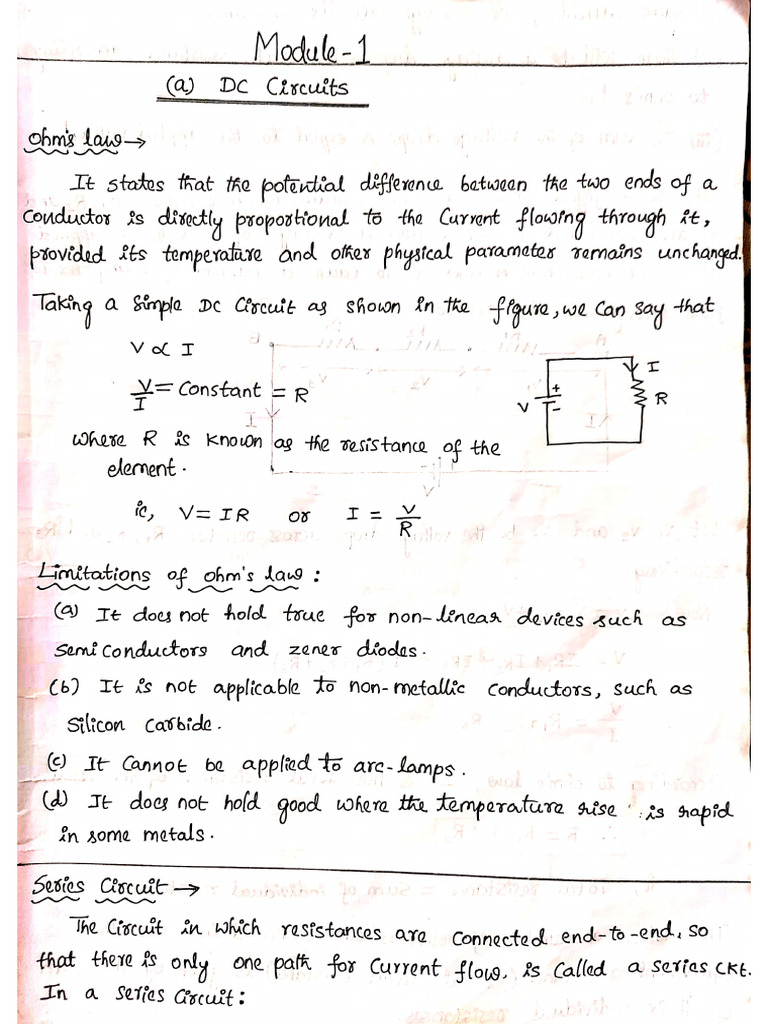 Module-1
(a) DC Circuits
Ohm's law→
It states that the potential difference between the two ends of a
conductor is directly proportional to the current flowing through it,
provided its temperature and other physical parameter remains unchanged.
Taking a simple DC Circuit as shown in the figure, we can say that
V ∝ I
V/I = Constant = R
I
V
+
-
R
where R is known as the resistance of the
element.
ie, V = IR or I = V/R
Limitations of ohm's law :
(a) It does not hold true for non-linear devices such as
semi conductors and zener diodes.
(b) It is not applicable to non-metallic conductors, such as
silicon carbide.
(c) It cannot be applied to arc-lamps.
(d) It does not hold good where the temperature rise is rapid
in some metals.
Series Circuit →
The Circuit in which resistances are connected end-to-end, so
that there is only one path for current flow, is called a series ckt.
In a series circuit :